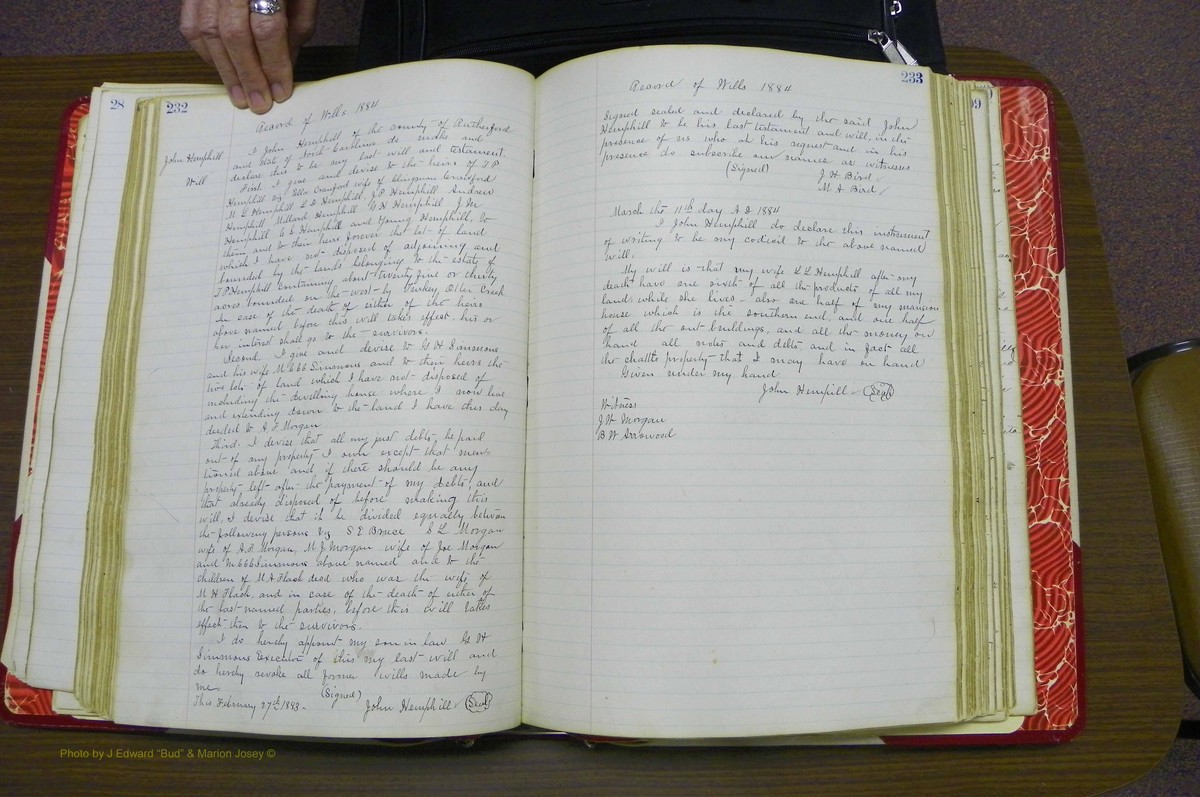 28
232
Record of Wills 1884
John Hemphill
Will
I John Hemphill of the county of Rutherford
and State of North Carolina do make and
declare this to be my last will and testament.
First. I give and devise to the heirs of T.P.
Hemphill viz Ella Crawford wife of Crawford
M L Hemphill L D Hemphill J P Hemphill Andrew
Hemphill Millard Hemphill W H Hemphill J M
Hemphill C C Hemphill and Young Hemphill, to
them and to their heirs forever that lot of land
which I have not disposed of adjoining and
bounded by the lands belonging to the estate of
T P Hemphill containing about twenty five or thirty
acres bounded on the west by Turkey Creek
In case of the death of either of the heirs
above named before this will takes effect his or
her interest shall go to the survivors.
Second. I give and devise to G H Simmons
and his wife M Simmons and to their heirs the
two lots of land which I have not disposed of
including the dwelling house where I now live
and extending down to the land I have this day
deeded to A F Morgan
Third. I devise that all my just debts be paid
out of any property I own except that men-
tioned above and if there should be any
property left after the payment of my debts, and
that already disposed of before making this
will, I devise that it be divided equally between
the following persons viz S E Bruce S L Morgan
wife of A F Morgan, M J Morgan wife of Joe Morgan
and M Simmons above named and to the
children of M A Flack decd who was the wife of
M H Flack, and in case of the death of either of
the last named parties, before this will takes
effect then to the survivors.
I do hereby appoint my son in law G H
Simmons Executor of this my last will and
do hereby revoke all former wills made by
me.
(Signed)
This February 27th 1883. John Hemphill (Seal)
233
Record of Wills 1884
Signed sealed and declared by the said John
Hemphill to be his last testament and will, in the
presence of us who at his request and in his
presence do subscribe our names as witnesses
(Signed) J. H Bird
M A Bird
March the 11th day A D 1884
I John Hemphill do declare this instrument
of writing to be my codicil to the above named
will.
My will is that my wife L L Hemphill after my
death have one sixth of all the products of all my
lands while she lives also one half of my mansion
house which is the southern end, and one half
of all the out buildings, and all the money on
hand all notes and debts and in fact all
the chatts property that I may have on hand
Given under my hand
John Hempill (Seal)
Witness
J W Morgan
B W Arrowood
Photo by J Edward "Bud" & Marion Josey ©